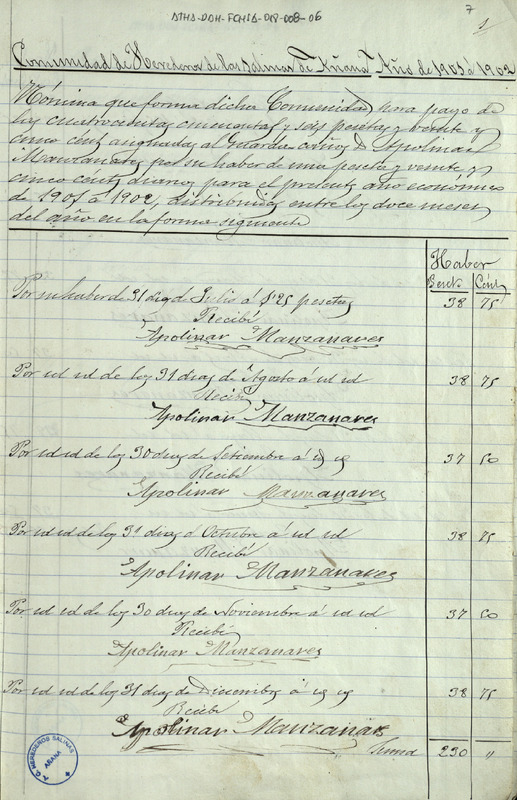 ATHA-DOH-FCHSA-018-008-06
7
1
Comunidad de Herederos de las Salinas de Añana Año de 1901 á 1902
Nómina que forma dicha Comunidad para pago de
las cuatrocientas cincuenta y seis pesetas y veinte y
cinco cents asignadas al Guarda D. Apolinar
Manzanares por su haber de una peseta y veinte y
cinco cents diarios para el presente año economico
de 1901 á 1902, distribuidas entre los doce meses
del año en la forma siguiente
Haber
Peset Cént
Por su haber de 31 dias de Julio á 1'25 pesetas 38 75
Recibí
Apolinar Manzanares
Por id id de los 31 dias de Agosto á id id 38 75
Recibí
Apolinar Manzanares
Por id id de los 30 dias de Setiembre á id id 37 50
Recibí
Apolinar Manzanares
Por id id de los 31 dias d Octubre á id id 38 75
Recibí
Apolinar Manzanares
Por id id de los 30 dias de Noviembre á id id 37 50
Recibí
Apolinar Manzanares
Por id id de los 31 dias de Diciembre á id id 38 75
Recibí
Apolinar Manzanares
Suma 230 "
A.C. HEREDEROS SALINAS
AÑANA